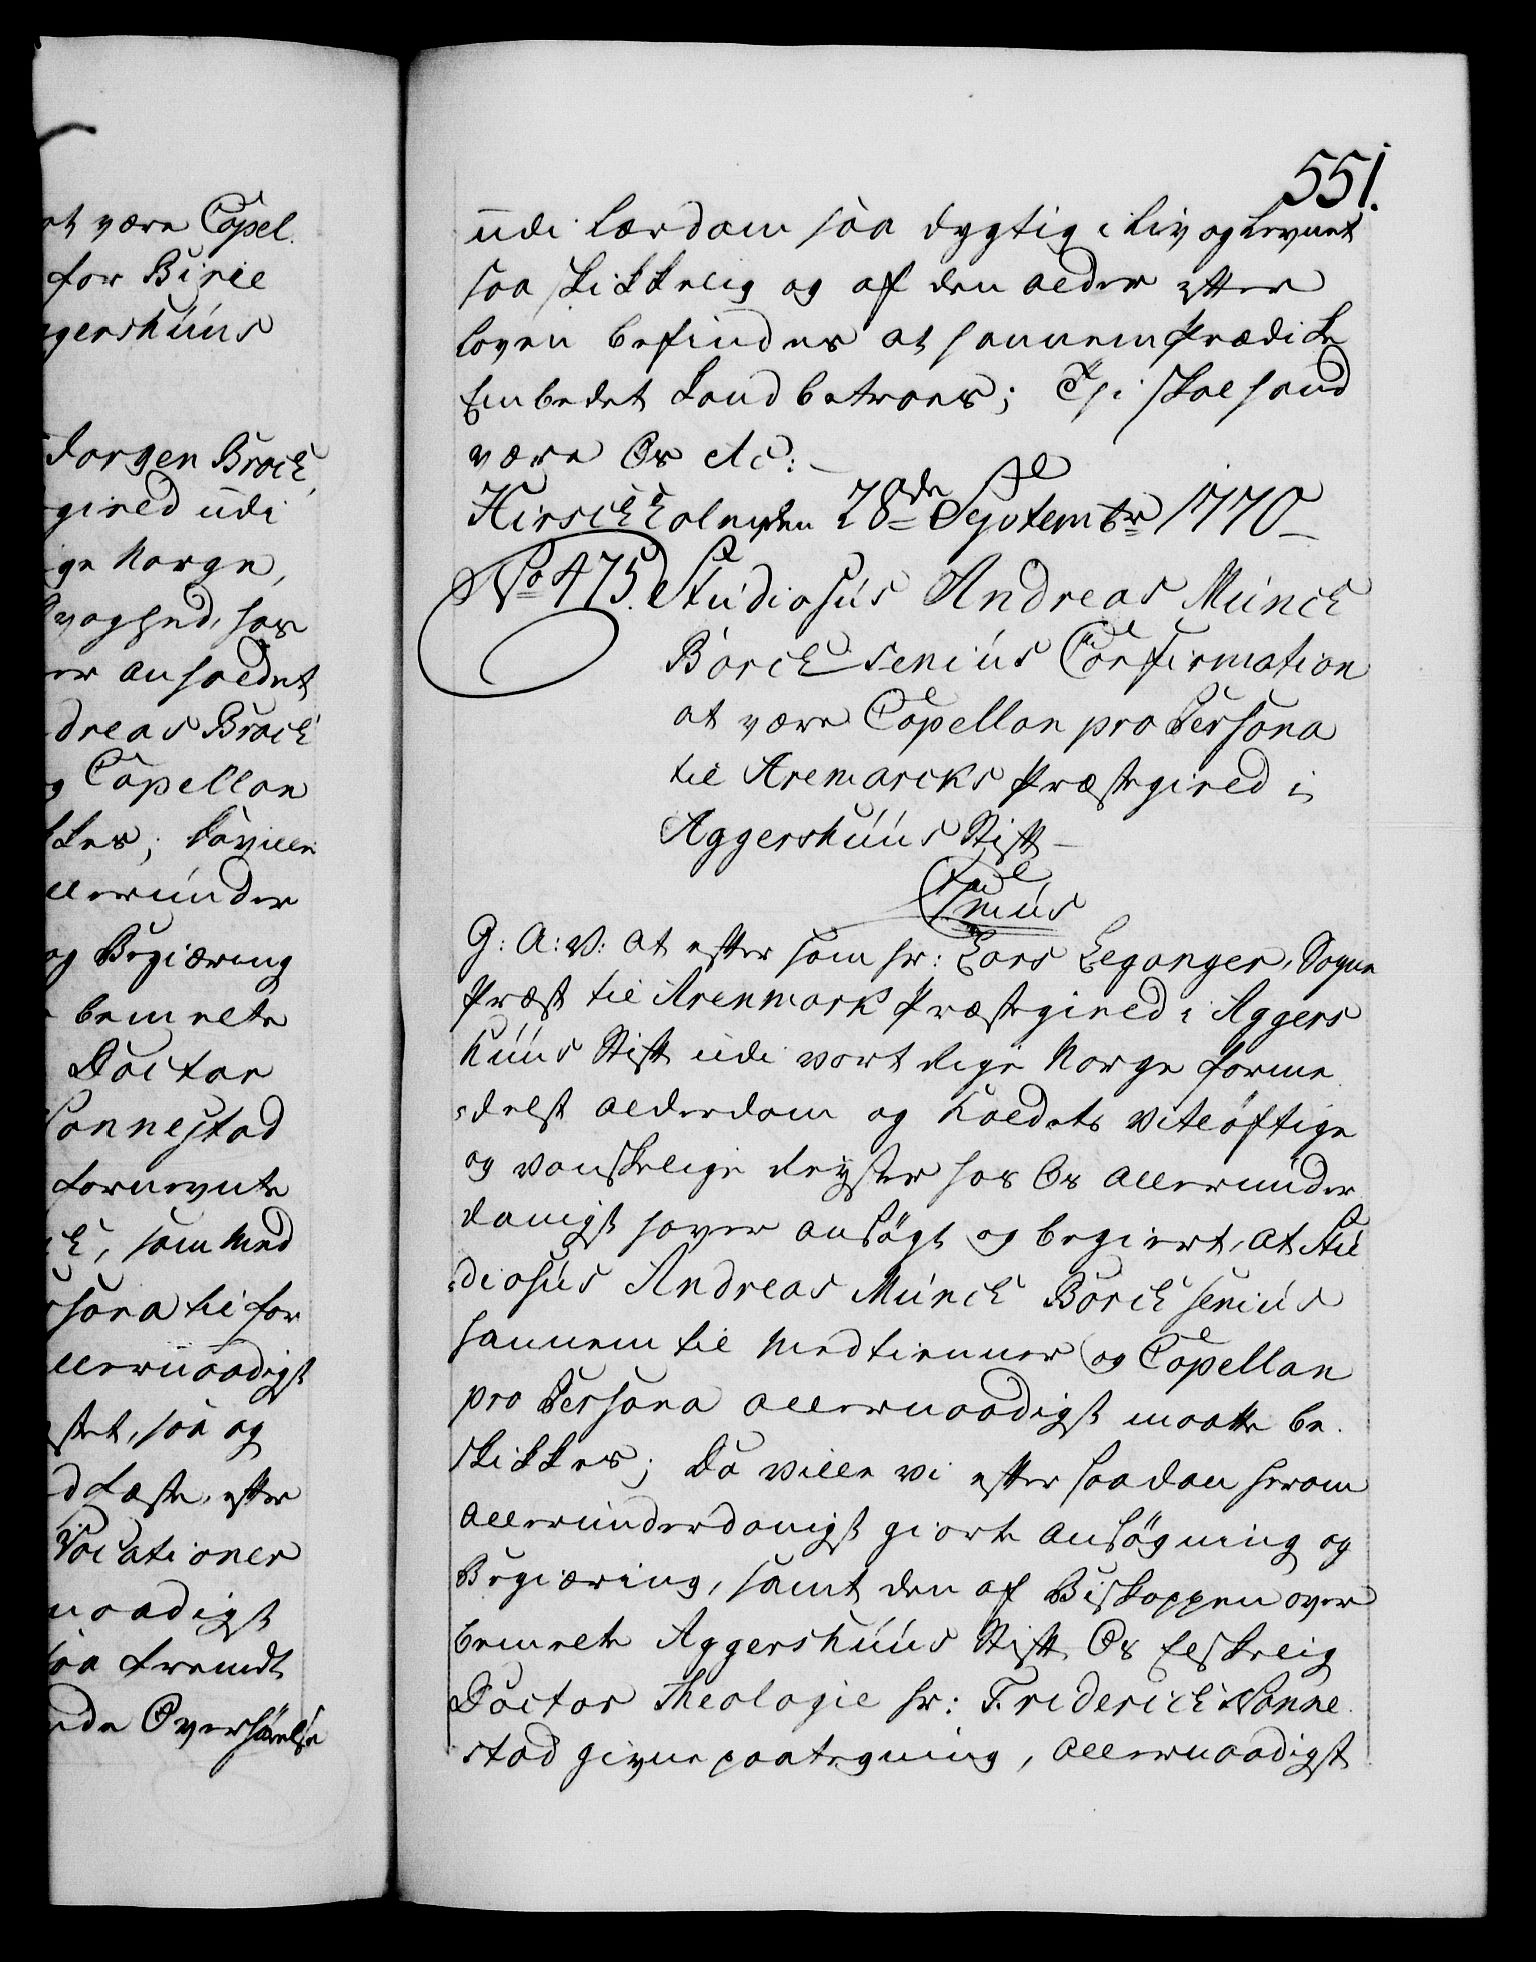 at være Capel.
for Birie
ggershuus
Jørgen Brock,
gield udi
ge Norge,
svaghed, hos
er anholdet
dreas Brock
g Capellan
kkes; Da ville
llerunder
og Begiæring
bemelte
Doctor
Nonnestad
fornevnte
ck, som Med
sona til for
llernaadigst
stet, saa og
d Læste, efter
Vocationer
naadigst
saa fremdt
nde Overhørelse
551.
udi Lærdom saa dygtig, i Liv og Levnet
saa skikkelig og af den alder efter
loven befindes at hannem Prædike
Embedet kand betroes; Thi skal hand
være Os etc:
Hirschholm, den 28de Septembr 1770
No 475. Studiosus Andreas Munck
Borchsenius Confirmation
at være Capellan pro Persona
til Aremarcks Præstegield i
Aggershuus Stift
G: A: V: at efter som hr: Lars Leganger, Sogne
Præst til Arenmark Præstegield i Aggers
huus Stift udi vort Rige Norge forme
delst alderdom og Kaldets vitløftige
og vanskelige Reyser hos Os allerunder
danigst haver ansøgt og begiert, at Stu
diosus Andreas Munck Borch senius
hannem til Medtienner og Capellan
pro Persona allernaadigst maatte be
skikkes; Da ville vi efter saadan herom
allerunderdanigst giorte ansøgning og
Begiæring, samt den af Biskoppen over
bemelte Aggershuus Stift Os Elskelig
Doctor Theologie hr: Friderich Nonne
stad givne paategning, allernaadigst